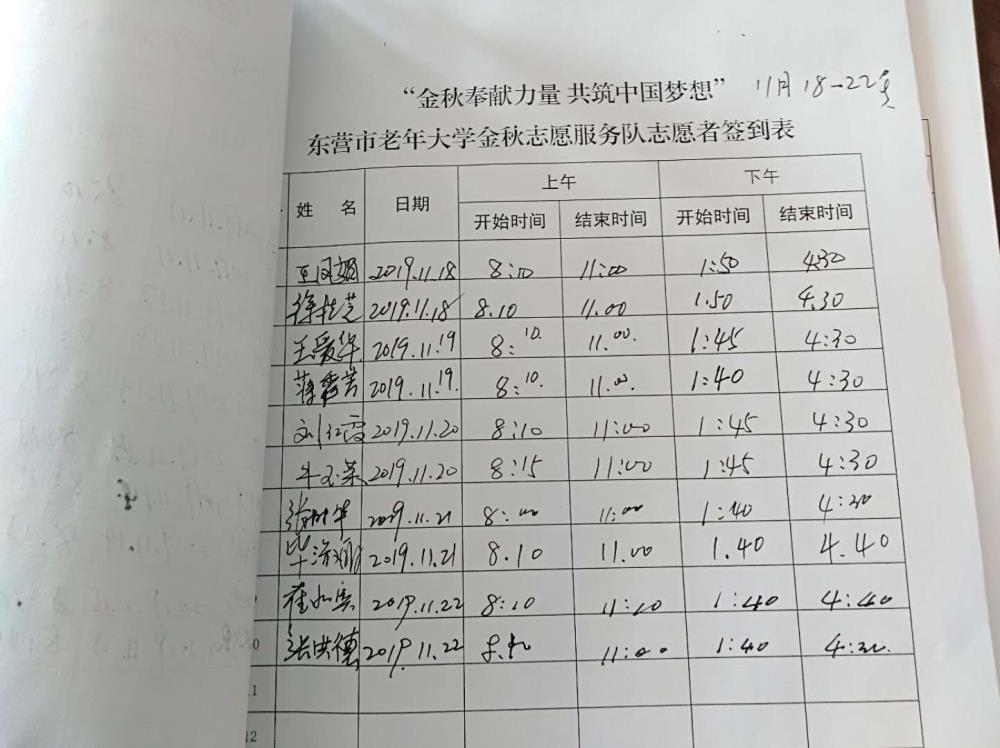 “金秋奉献力量 共筑中国梦想” 11月18-22
东营市老年大学金秋志愿服务队志愿者签到表
姓 名 日期 上午 下午
开始时间 结束时间 开始时间 结束时间
2019.11.18 8:10 11:00 1:50 4:30
徐桂芝 2019.11.18 8.10 11.00 1.50 4.30
王爱华 2019.11.19 8:10. 11.00. 1:45 4:30
蒋秀芳 2019.11.19. 8:10. 11.00. 1:40 4:30
刘红霞 2019.11.20 8:10 11:00 1:45 4:30
牛玉荣 2019.11.20 8:15 11:00 1:45 4:30
张树华 2019.11.21 8:00 11:00 1:40 4:30
毕 2019.11.21 8.10 11.00 1.40 4.40
崔 2019.11.22 8:10 11:10 1:40 4:40
张洪德 2019.11.22 11:00 1:40 4:30
12